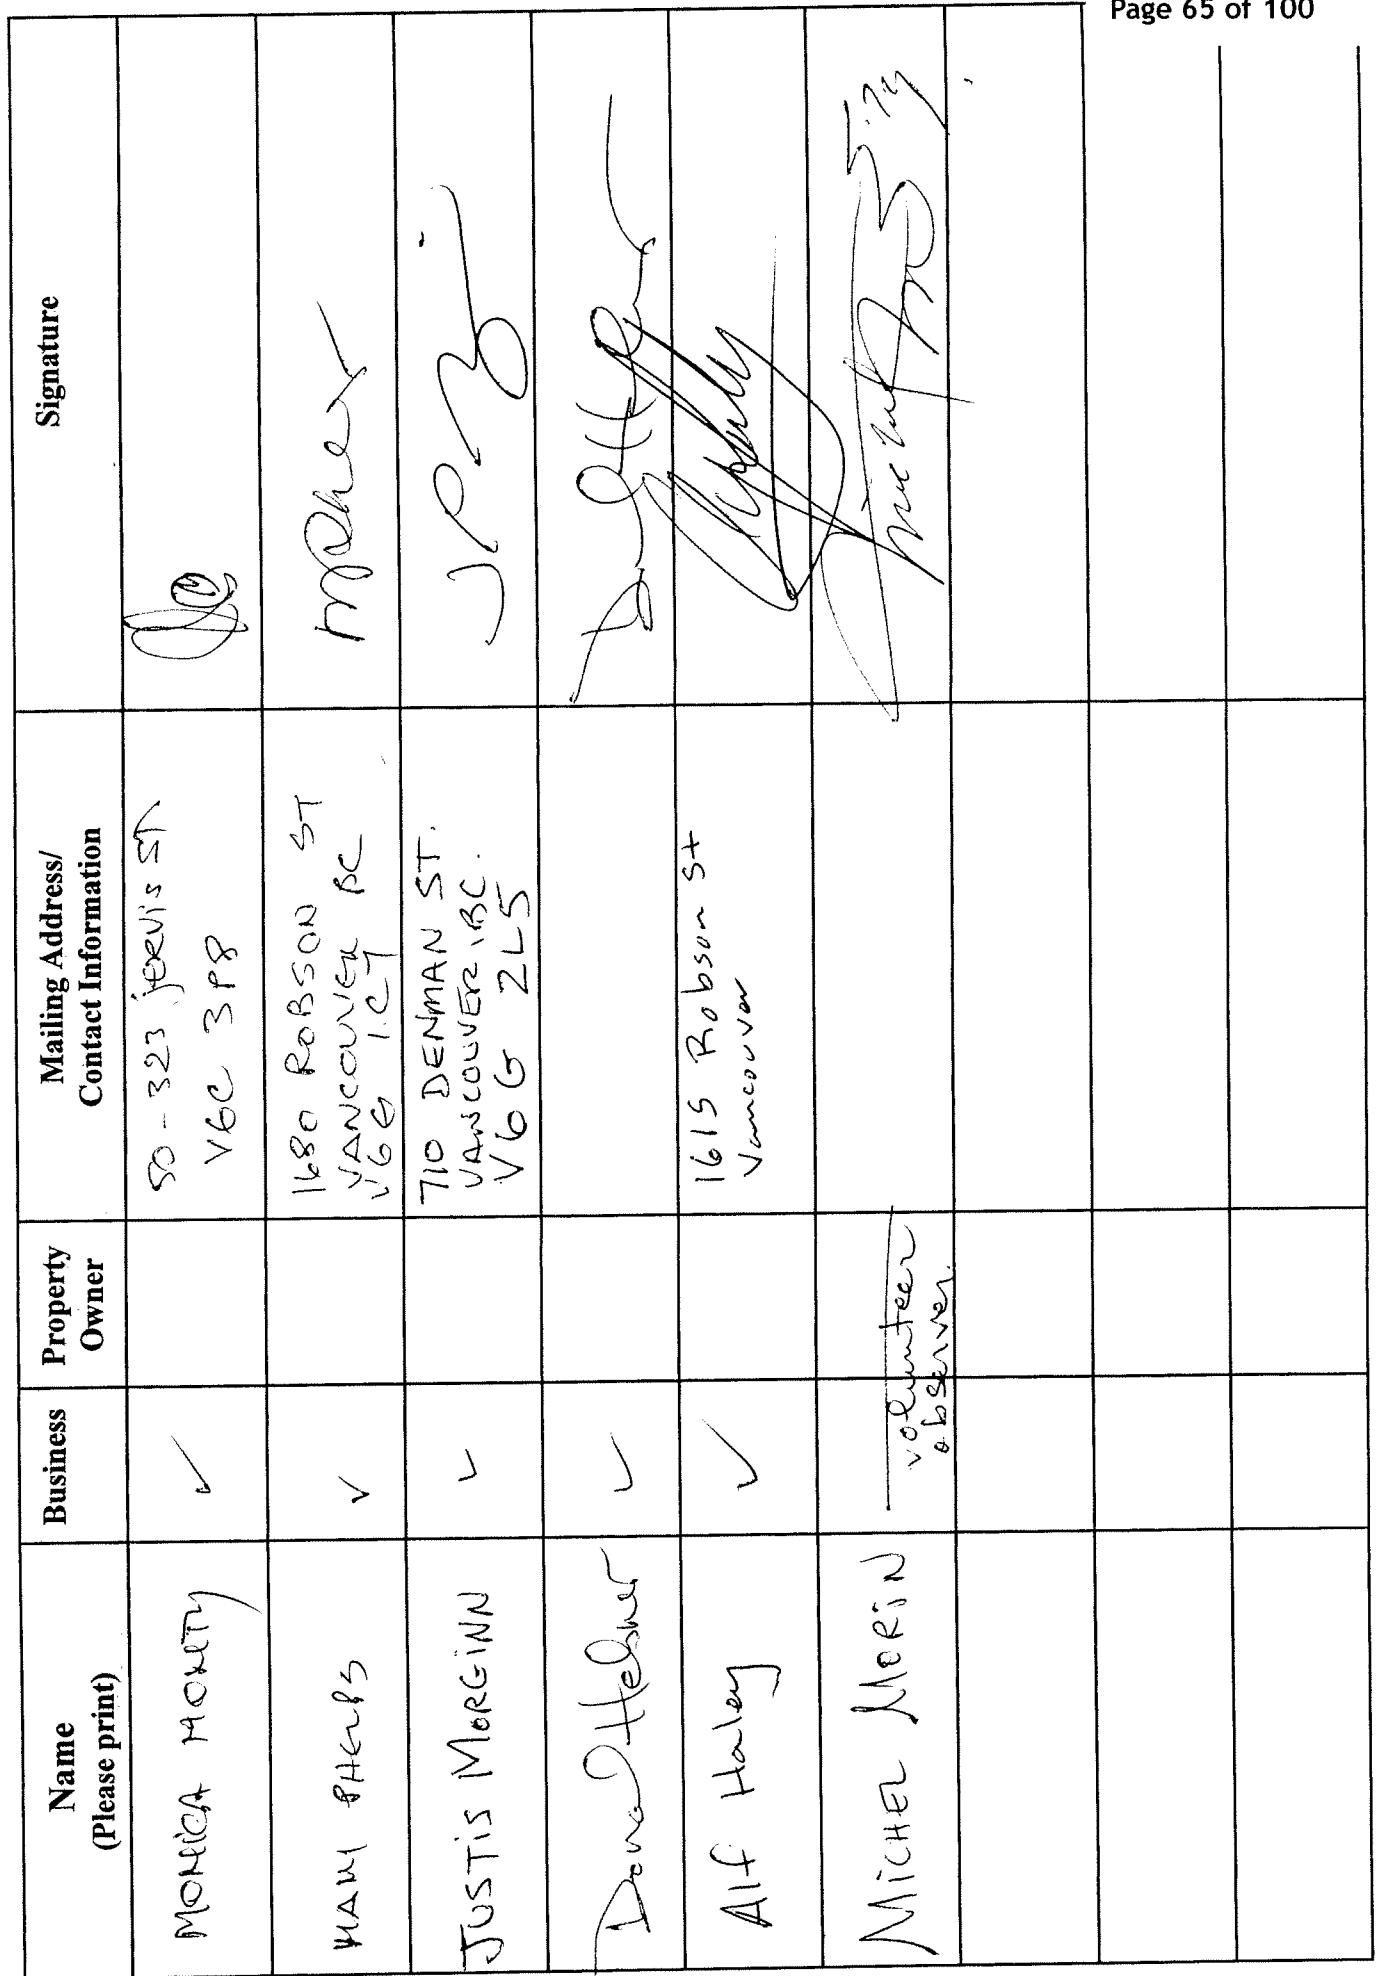 Page 65 of 100
Name
(Please print)
Business
Property
Owner
Mailing Address/
Contact Information
Signature
MONICA MONETY
50-323 jERViS ST
V6C 3P8
PHELPS
1680 ROBSON ST
VANCOUVER BC
V6G 1C7
JUSTiS MORGiNN
710 DENMAN ST.
VANCOUVER, BC.
V6G 2L5
Alf Haley
1615 Robson St
Vancouver
MiCHEL MORiN
volunteer
observer.